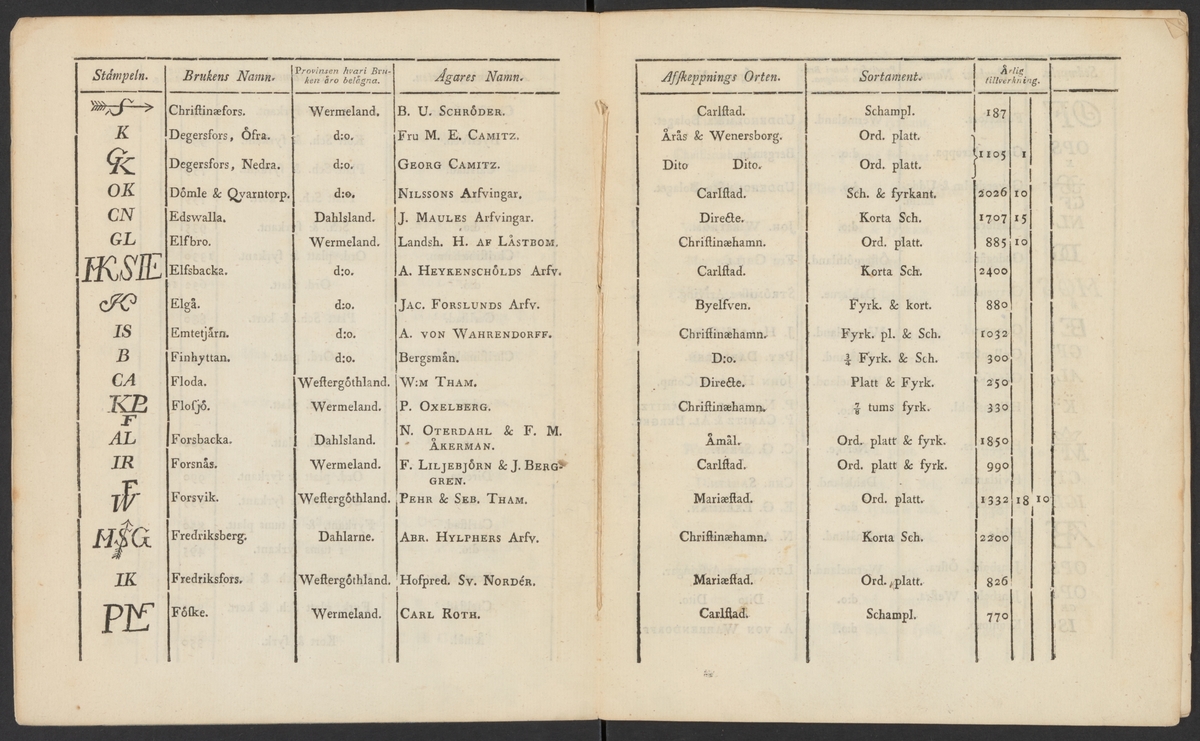 Stämpeln. Brukens Namn. Provinsen hvari Bru-ken åro belågna. Ägares Namn. Affkeppnings Orten. Sortament. Årlig tillverkning.
S Chriſtinæfors. Wermeland. B. U. SCHRÖDER. Carlſtad. Schampl. 187
K Degersfors, Öfra. d:o. Fru M. E. CAMITZ. Årås & Wenersborg. Ord. platt.
GK Degersfors, Nedra. d:o. GEORG CAMITZ. Dito Dito. Ord. platt. }1105 1
OK Dömle & Qvarntorp. d:o. NILSSONS Arfvingar. Carlſtad. Sch. & fyrkant. 2026 10
CN Edswalla. Dahlsland. J. MAULES Arfvingar. Directe. Korta Sch. 1707 15
GL Elfbro. Wermeland. Landsh. H. AF LÅSTBOM. Chriſtinæhamn. Ord. platt. 885 10
Elfsbacka. d:o. A. HEYKENSCHÖLDS Arfv. Carlſtad. Korta Sch. 2400
K Elgå. d:o. JAC. FORSLUNDS Arfv. Byelfven. Fyrk. & kort. 880
IS Emtetjärn. d:o. A. VON WAHRENDORFF. Chriſtinæhamn. Fyrk. pl. & Sch. 1032
B Finhyttan. d:o. Bergsmån. D:o. ¾ Fyrk. & Sch. 300
CA Floda. Weſtergöthland. W:M THAM. Directe. Platt & Fyrk. 250
Floſjö. Wermeland. P. OXELBERG. Chriſtinæhamn. ⅞ tums fyrk. 330
AL Forsbacka. Dahlsland. N. OTERDAHL & F. M. ÅKERMAN. Åmål. Ord. platt & fyrk. 1850
IR Forsnås. Wermeland. F. LILJEBJÖRN & J. BERG-GREN. Carlſtad. Ord. platt & fyrk. 990
F W Forsvik. Weſtergöthland. PEHR & SEB. THAM. Mariæſtad. Ord. platt. 1332 18 10
MSG Fredriksberg. Dahlarne. ABR. HYLPHERS Arfv. Chriſtinæhamn. Korta Sch. 2200
IK Fredriksfors. Weſtergöthland. Hofpred. SV. NORDÉR. Mariæſtad. Ord. platt. 826
Föſke. Wermeland. CARL ROTH. Carlſtad. Schampl. 770